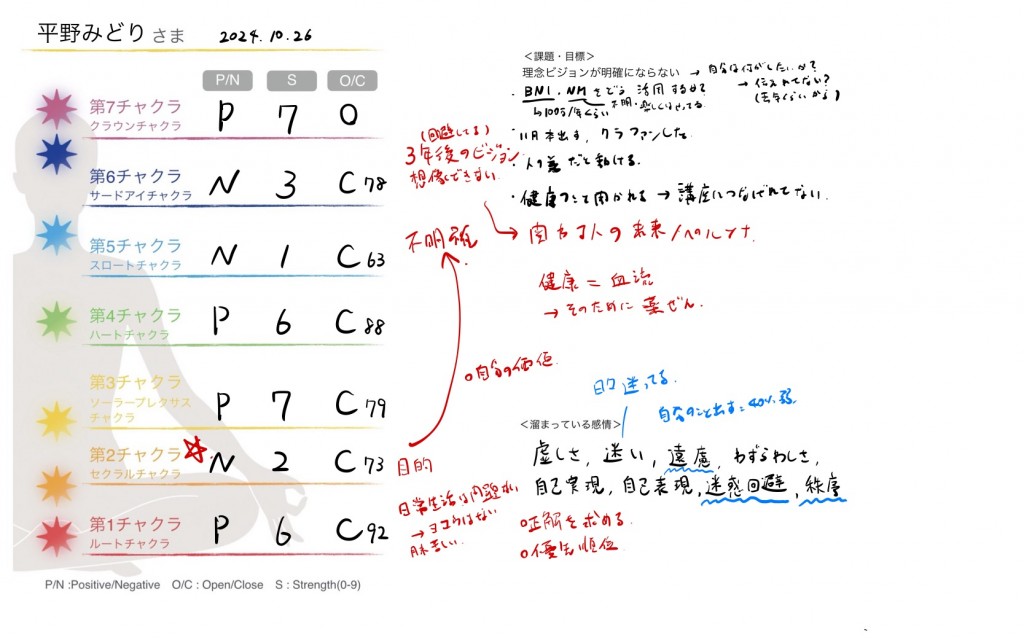 平野みどり さま 2024.10.26
P/N S O/C
第7チャクラ
クラウンチャクラ
P 7 O
第6チャクラ
サードアイチャクラ
N 3 C78
第5チャクラ
スロートチャクラ
N 1 C63
第4チャクラ
ハートチャクラ
P 6 C88
第3チャクラ
ソーラープレクサス
チャクラ
P 7 C79
第2チャクラ
セクラルチャクラ
N 2 C73
第1チャクラ
ルートチャクラ
P 6 C92
P/N :Positive/Negative O/C : Open/Close S : Strength(0-9)
(回避してる)
3年後のビジョン
想像できない
不明確
自分の価値
目的
日常生活は問題ない
→ヨユウはない
<課題・目標>
理念ビジョンが明確にならない → 自分は何がしたいか?
→ 伝えれてない?
(去年くらいから)
・BNI、NMをどう活用するか?
↳100万/年くらい 不明・
・11月本出す、クラファンした
・人の為だと動ける。
・健康のこと聞かれる → 講座につなげれてない。
→ 関わる人の未来/ペルソナ
健康 = 血流
→ そのために薬ぜん。
日々迷ってる。
自分のこと出す=40%弱。
<溜まっている感情>
虚しさ、迷い、遠慮、わずらわしさ、
自己実現、自己表現、迷惑回避、秩序
正解を求める。
優先順位